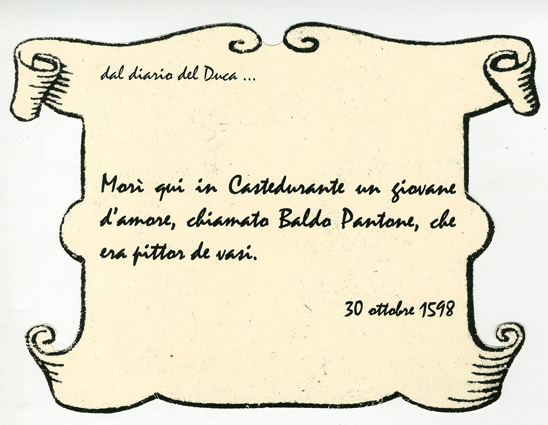 dal diario del Duca ...
Morì qui in Castedurante un giovane
d'amore, chiamato Baldo Pantone, che
era pittor de vasi.
30 ottobre 1598